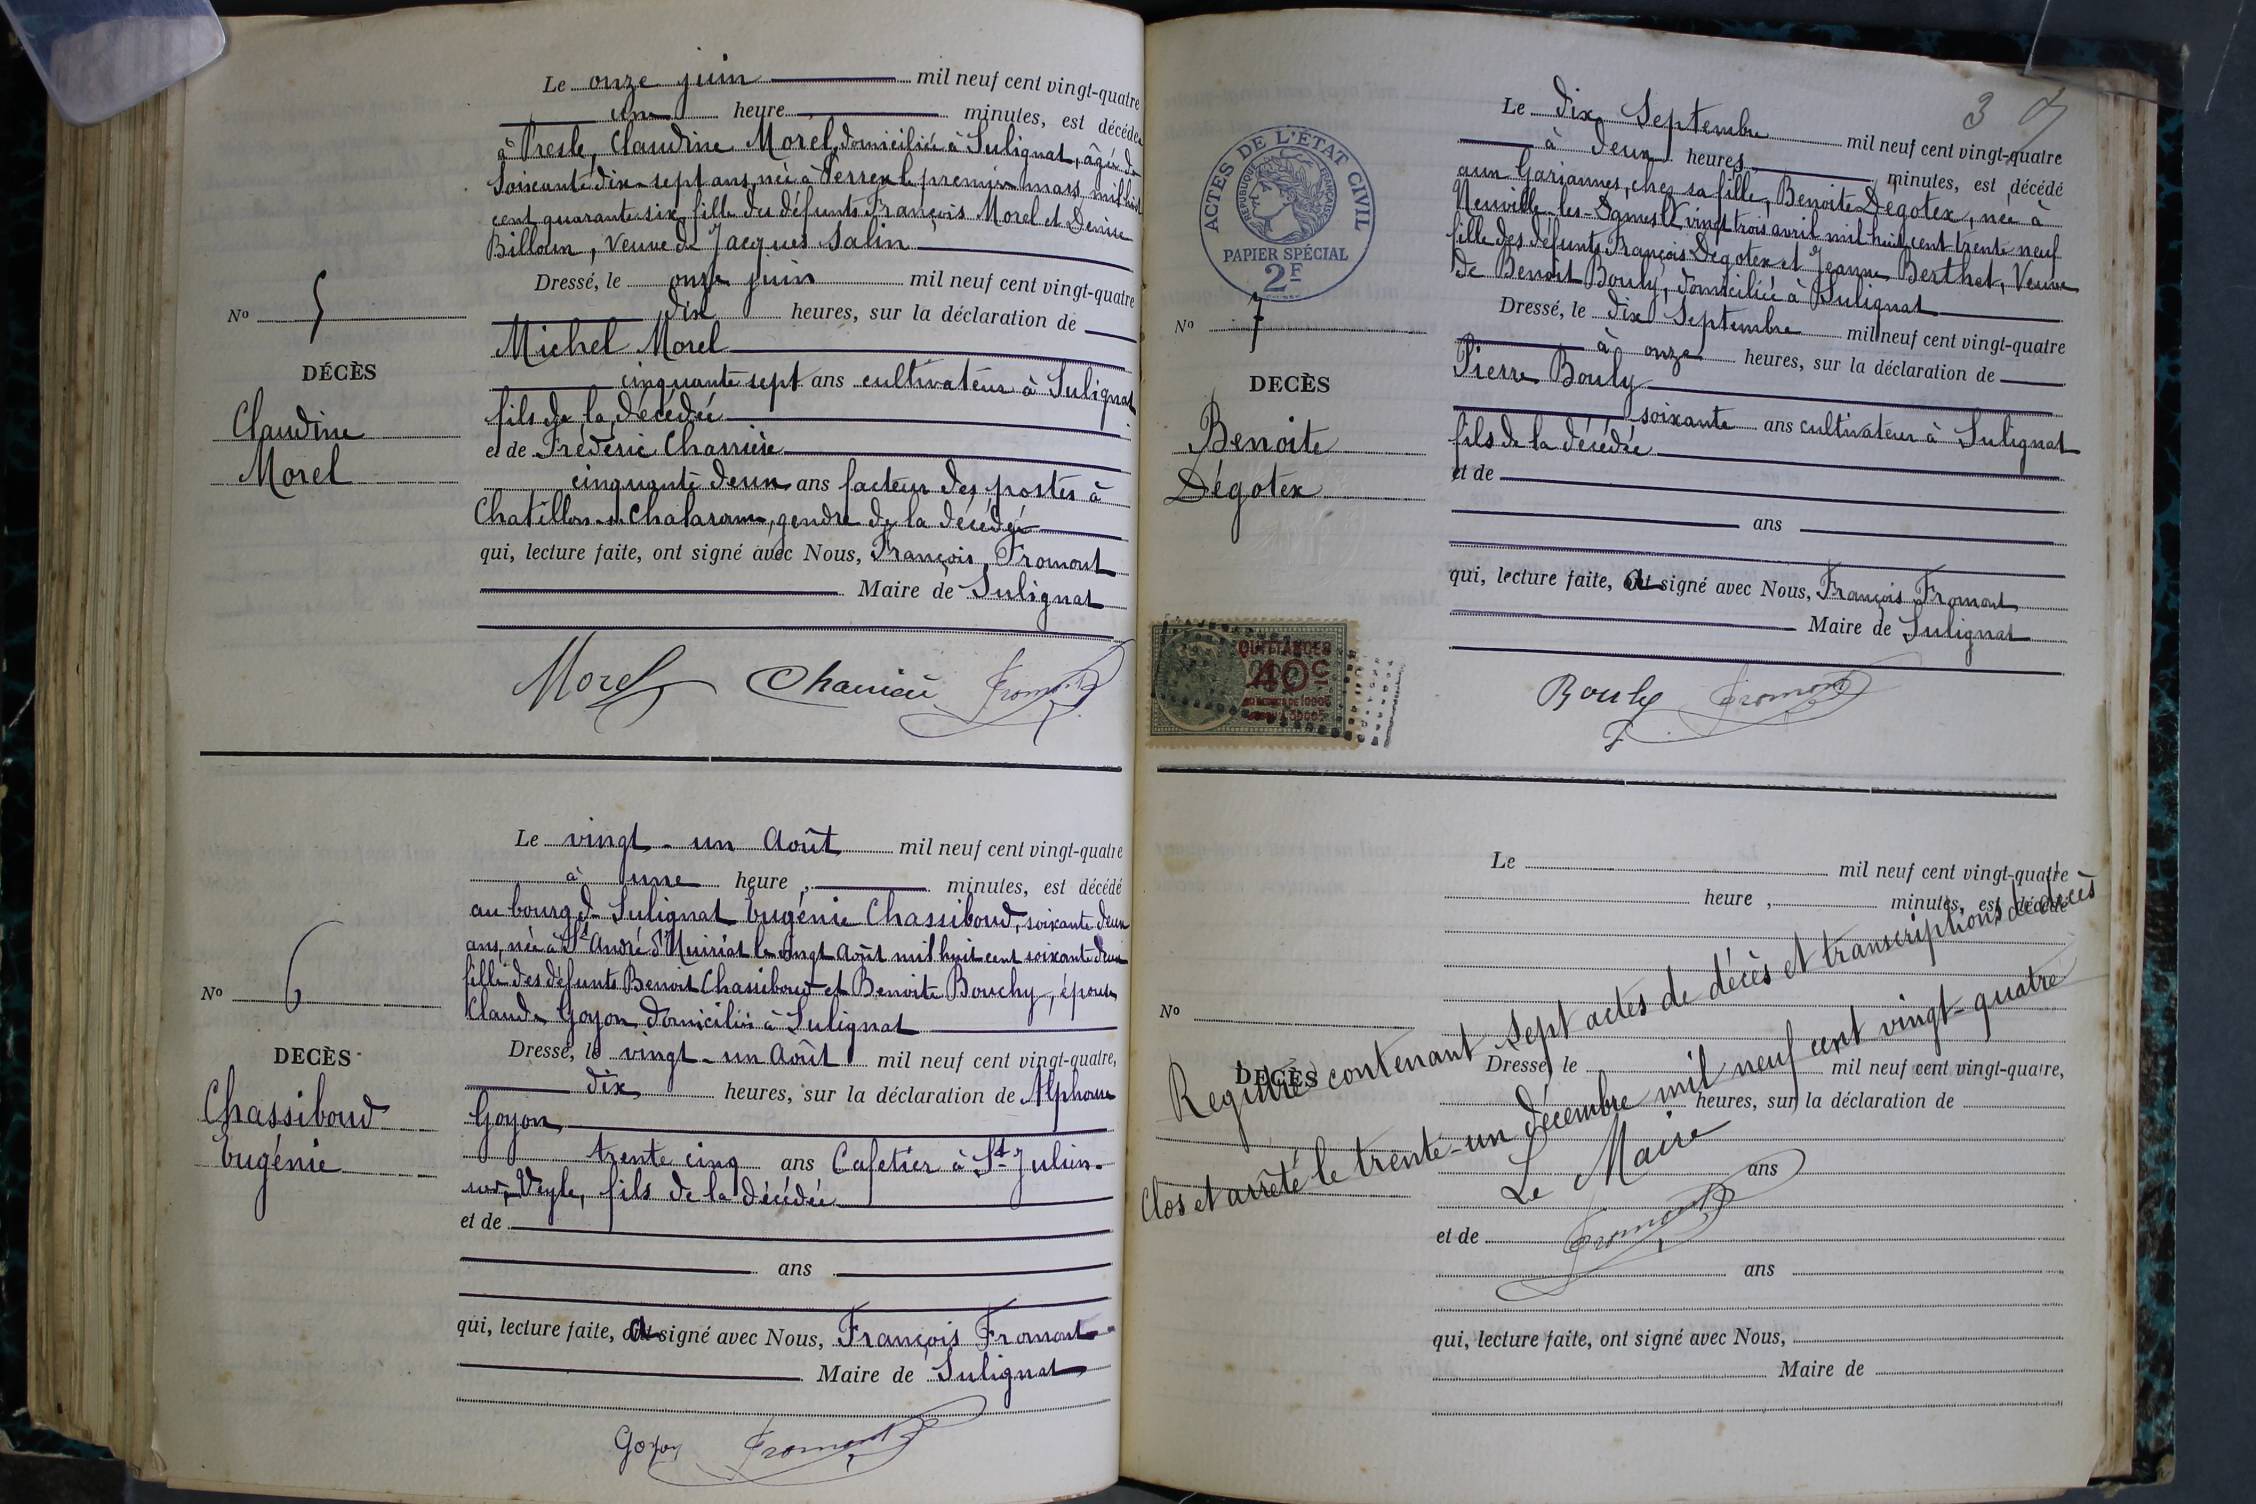 Le onze juin mil neuf cent vingt-quatre
une heure minutes, est décédée
à Presle, Claudine Morel, domiciliée à Sulignat, âgée de
soixante dix-sept ans, née à Perrex le premier mars mil huit
cent quarante six, fille des défunts François Morel et Denise
Billoun, veuve de Jacques Salin
Dressé, le onze juin mil neuf cent vingt-quatre
dix heures, sur la déclaration de
Michel Morel
cinquante sept ans cultivateur à Sulignat
fils de la décédée
et de Frédéric Charrière
cinquante deux ans facteur des postes à
Chatillon-s-Chalaronne, gendre de la décédée
qui, lecture faite, ont signé avec Nous, François Fromont
Maire de Sulignat
Nº 5
DÉCÈS
Claudine
Morel
Morel Fromont
Le vingt-un Août mil neuf cent vingt-quatre
à une heure, minutes, est décédé
au bourg de Sulignat Eugénie Chassiboud, soixante deux
ans, née à St André d'Huiriat le vingt Août mil huit cent soixante deux
fille des défunts Benoit Chassiboud et Benoite Bouchy, épouse
Claude Goyon domiciliée à Sulignat
Dressé, le vingt-un Août mil neuf cent vingt-quatre,
dix heures, sur la déclaration de Alphonse
Goyon
trente cinq ans Cafetier à St-Julien-
sur-Veyle, fils de la décédée
et de
ans
qui, lecture faite, a signé avec Nous, François Fromont
Maire de Sulignat
Nº 6
DECÈS
Chassiboud
Eugénie
Goyon Fromont
3
Le dix Septembre mil neuf cent vingt-quatre
à deux heures minutes, est décédé
aux Gariannes, chez sa fille, Benoite Dégotex, née à
Neuville-les-Dames le vingt trois avril mil huit cent trente neuf
fille des défunts François Dégotex et Jeanne Berthet, Veuve
de Benoit Bouly, domiciliée à Sulignat
Dressé, le dix Septembre mil neuf cent vingt-quatre
à onze heures, sur la déclaration de
Pierre Bouly
soixante ans cultivateur à Sulignat
fils de la décédée
et de
ans
qui, lecture faite, a signé avec Nous, François Fromont
Maire de Sulignat
ACTES DE L'ÉTAT CIVIL
RÉPUBLIQUE FRANÇAISE
PAPIER SPÉCIAL
2F
Nº 7
DECÈS
Benoite
Dégotex
QUITTANCES
40c
Bouly Fromont
Le mil neuf cent vingt-quatre
heure, minutes, est décédé
Nº
DECÈS
Dressé, le mil neuf cent vingt-quatre,
heures, sur la déclaration de
ans
et de
ans
qui, lecture faite, ont signé avec Nous,
Maire de
Registre contenant sept actes de décès et transcriptions de décès
Clos et arrêté le trente-un décembre mil neuf cent vingt-quatre
Le Maire
Fromont